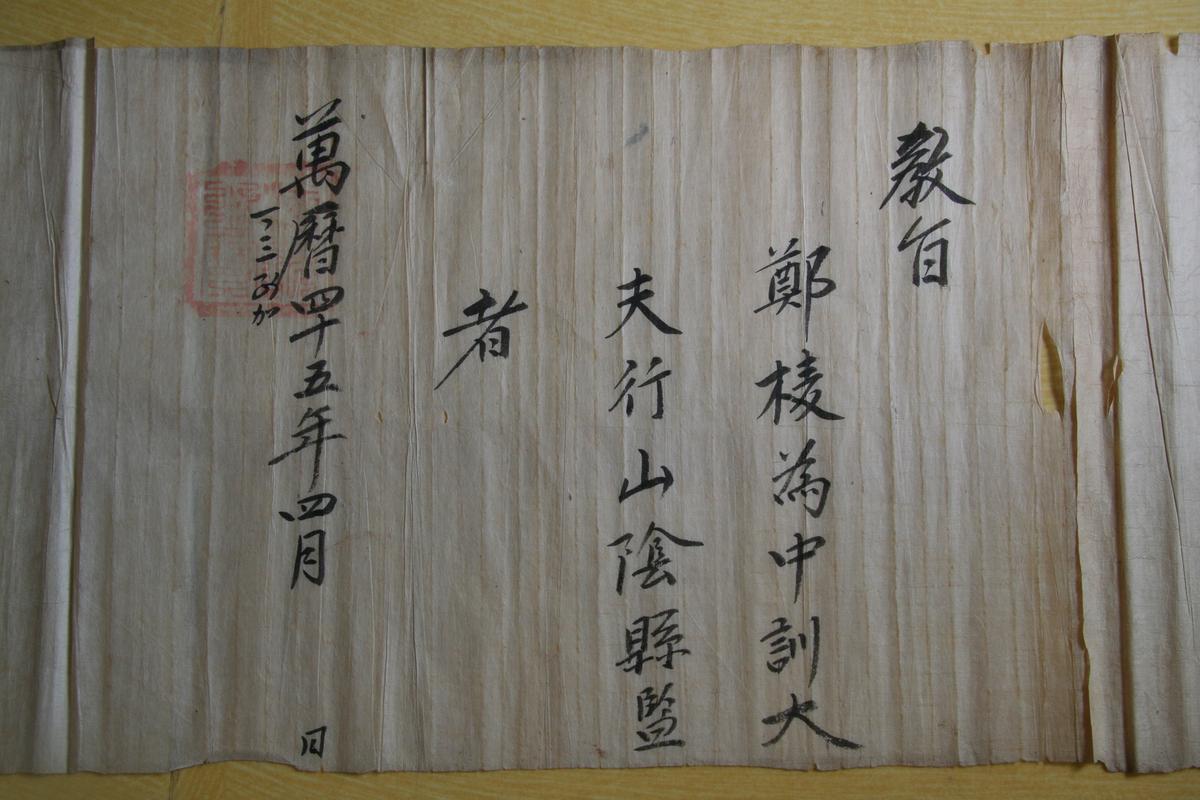 敎旨
鄭棱為中訓大
夫行山陰縣監
者
萬曆四十五年四月 日